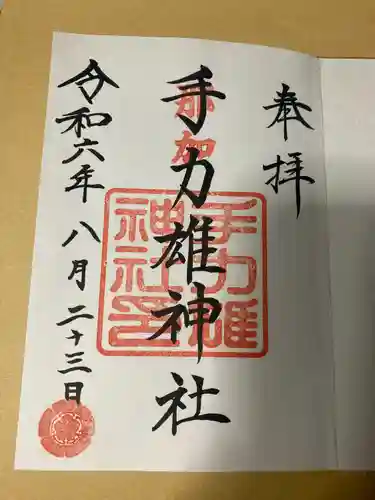 奉拝
那加
手力雄神社
手力雄
神社印
令和六年八月二十三日